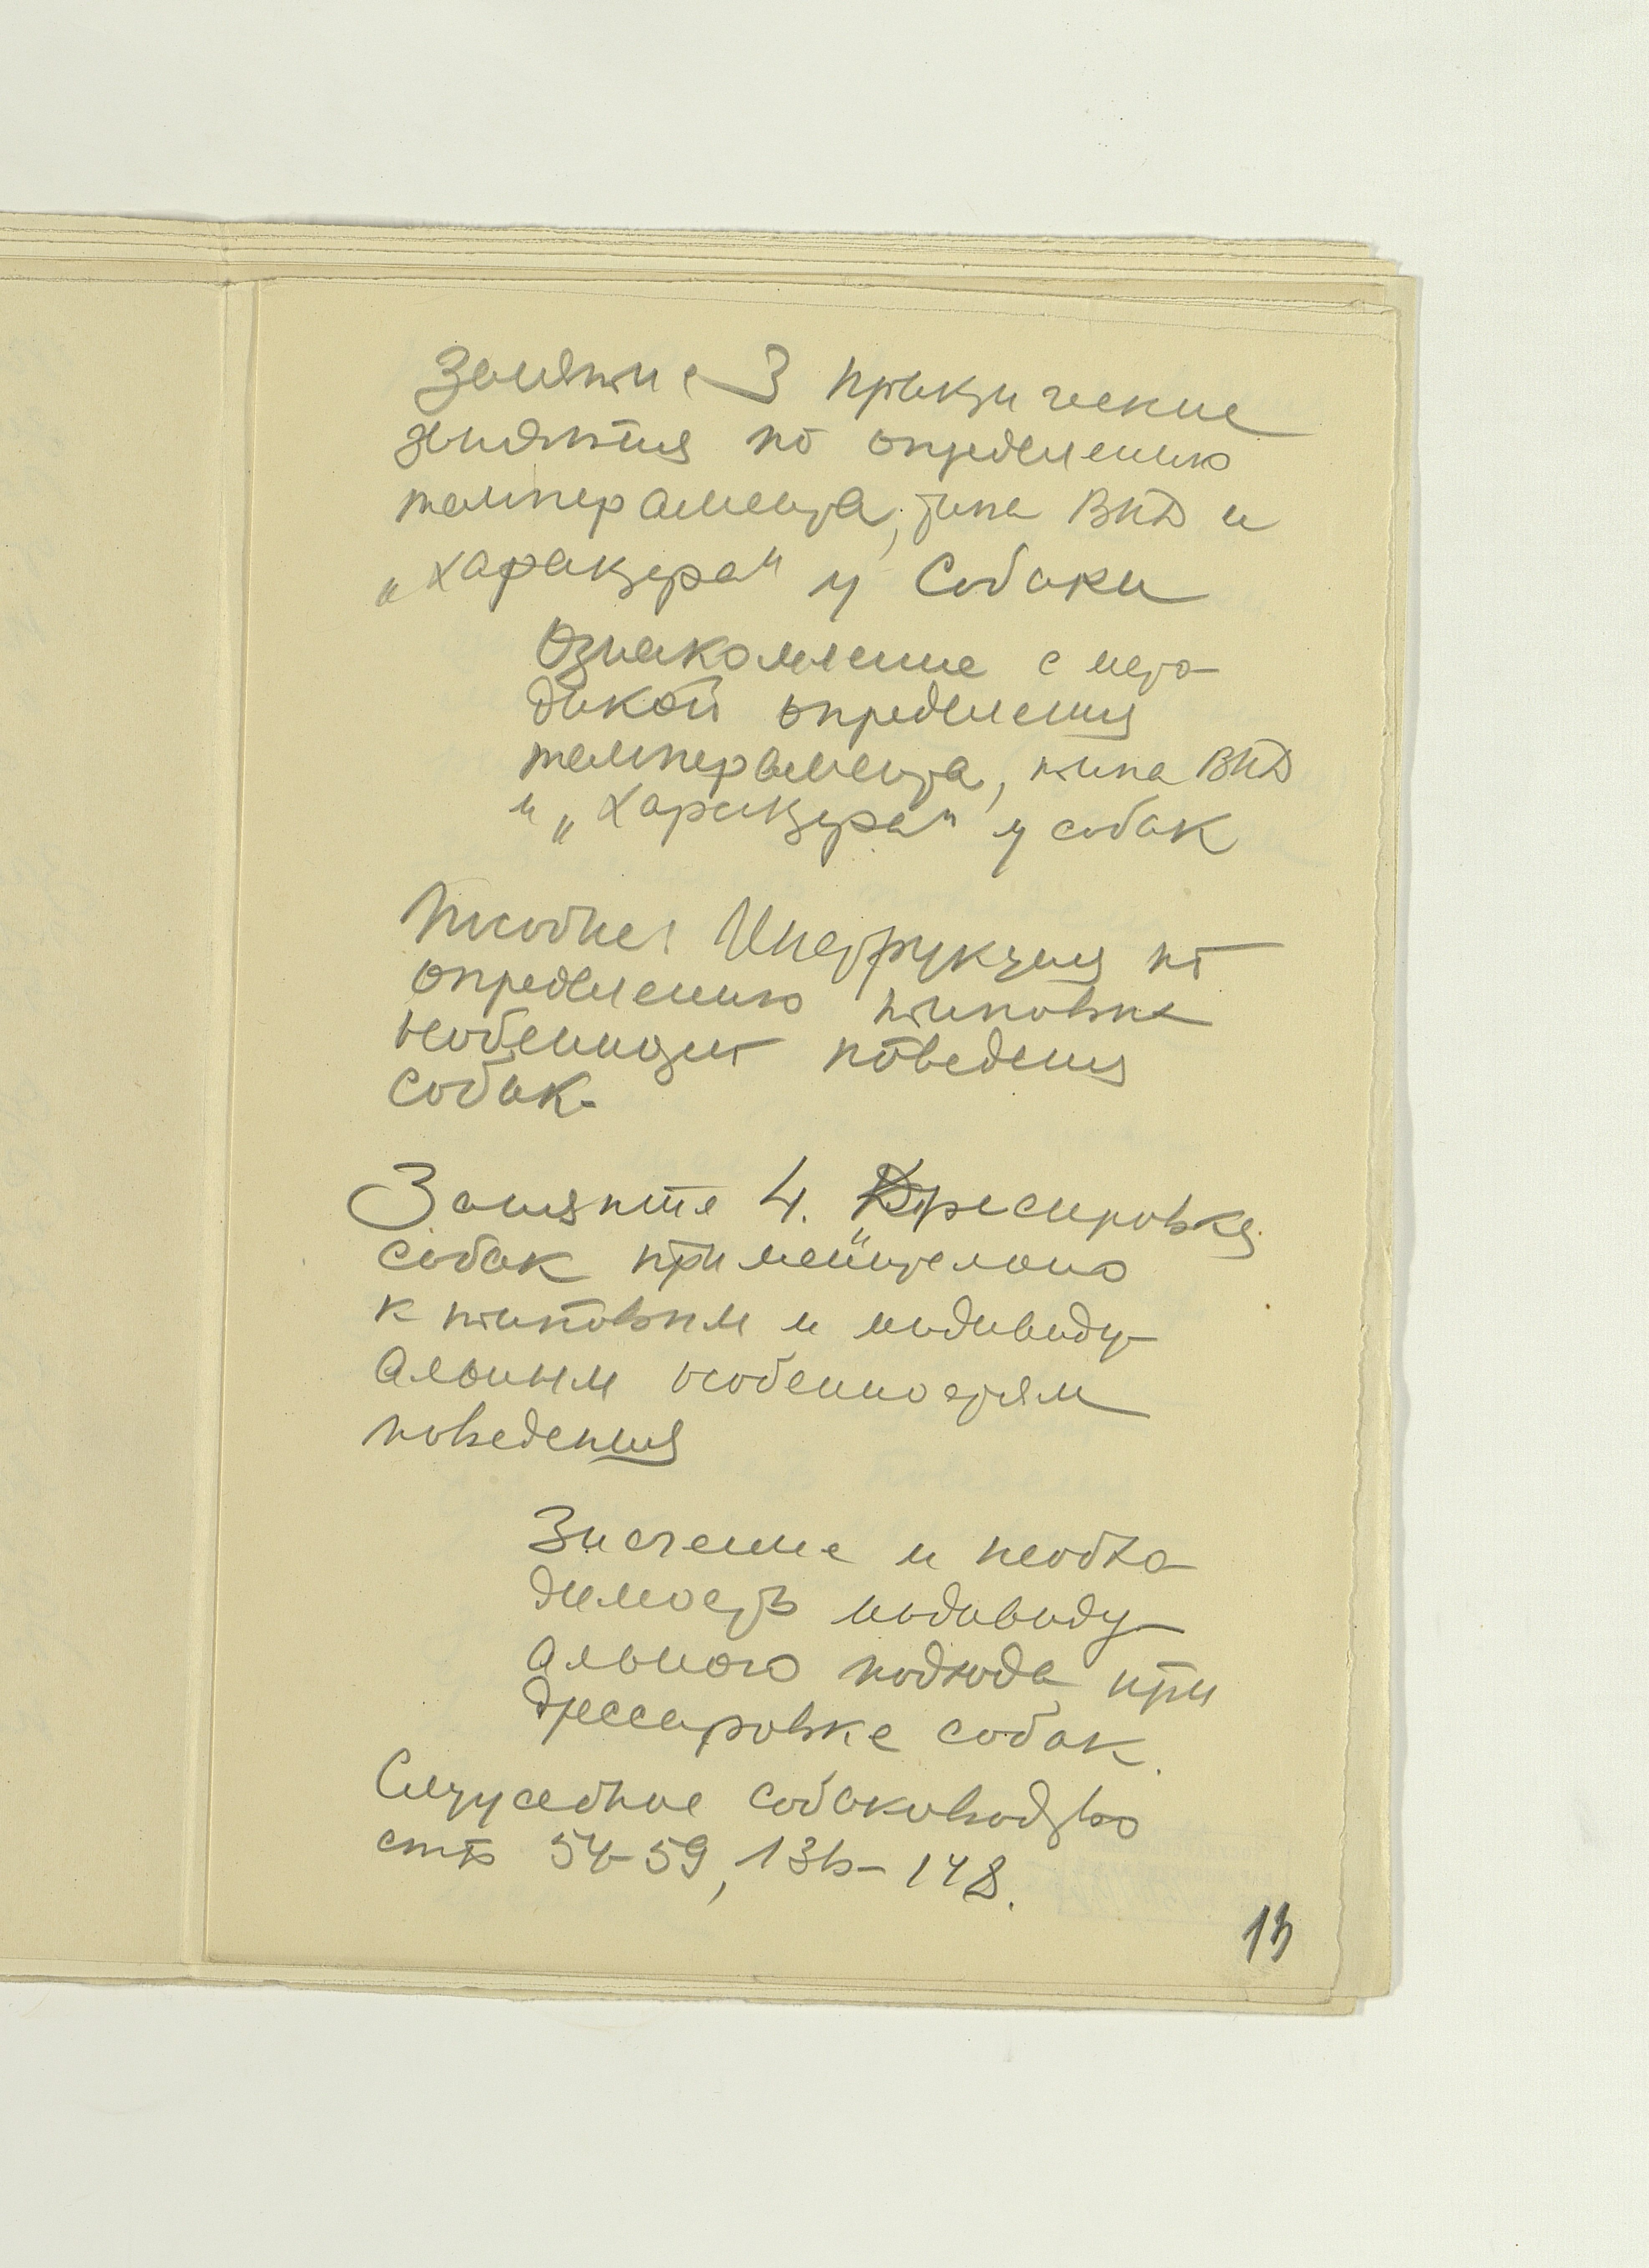 Занятие 3 практические
занятия по определению
темперамента, типа ВНД и
„характера" у собаки
Ознакомление с мето-
дикой определения
темперамента, типа ВНД
и „характера" у собак
Пособие: Инструкция по
определению типовых
особенностей поведения
собак.
Занятие 4. Дрессировка
собак применительно
к типовым и индивиду-
альным особенностям
поведения
Значение и необхо-
димость индивиду-
ального подхода при
дрессировке собак.
Служебное собаководство
стр 54-59, 136-148.
13